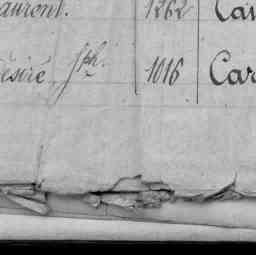 aurent. 1262 Cav
ésiré Jph. 1016 Car